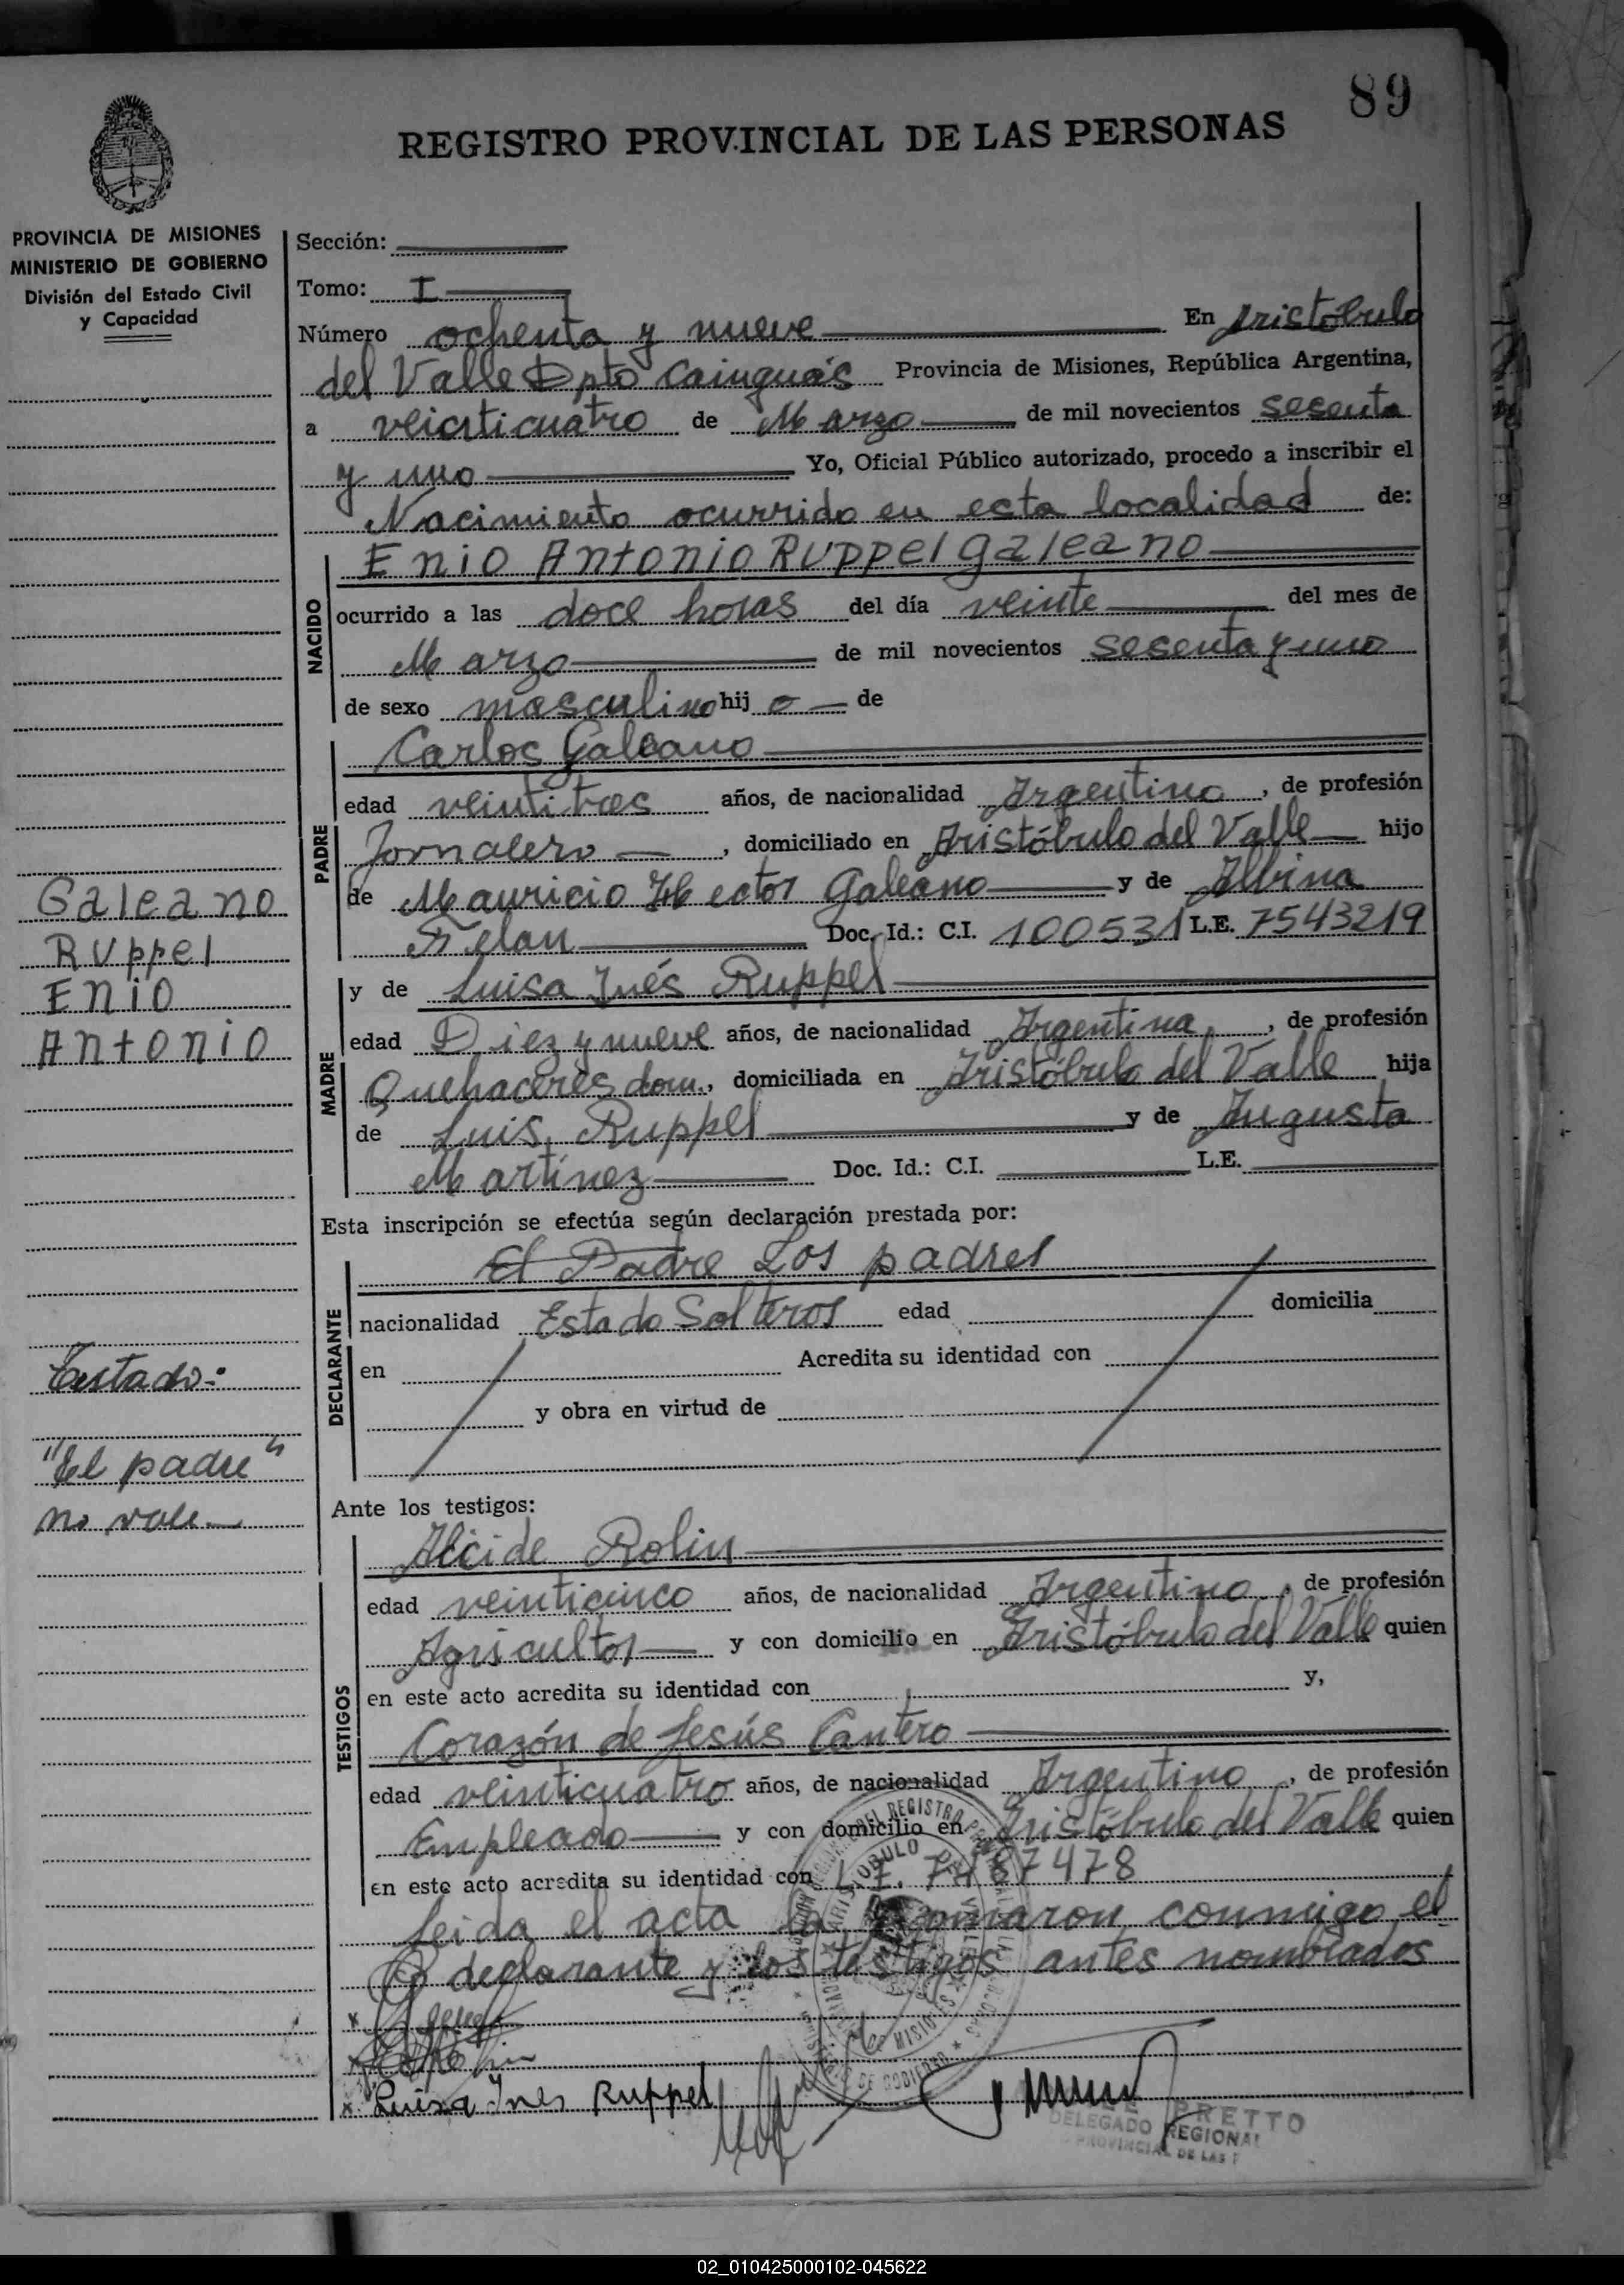 89
REGISTRO PROVINCIAL DE LAS PERSONAS
PROVINCIA DE MISIONES
MINISTERIO DE GOBIERNO
División del Estado Civil
y Capacidad
Sección:
Tomo: I
Número ochenta y nueve En Aristóbulo
del Valle Dpto Cainguás Provincia de Misiones, República Argentina,
a veinticuatro de Marzo de mil novecientos sesenta
y uno Yo, Oficial Público autorizado, procedo a inscribir el
Nacimiento ocurrido en esta localidad de:
NACIDO
Enio Antonio Ruppel Galeano
ocurrido a las doce horas del día veinte del mes de
Marzo de mil novecientos sesenta y uno
de sexo masculino hij o de
PADRE
Carlos Galeano
edad veintitres años, de nacionalidad Argentino, de profesión
Jornalero, domiciliado en Aristóbulo del Valle hijo
de Mauricio Hector Galeano y de Albina
Doc. Id.: C.I. 100531 L.E. 7543219
Galeano
Ruppel
Enio
Antonio
MADRE
y de Luisa Inés Ruppel
edad Diez y nueve años, de nacionalidad Argentina, de profesión
Quehaceres dom., domiciliada en Aristóbulo del Valle hija
de Luis Ruppel y de Augusta
Martínez Doc. Id.: C.I. L.E.
Esta inscripción se efectúa según declaración prestada por:
DECLARANTE
El Padre Los padres
nacionalidad Estado Solteros edad domicilia
en Acredita su identidad con
y obra en virtud de
Testado:
"El padre"
no vale
Ante los testigos:
TESTIGOS
Alcide Rolin
edad veinticinco años, de nacionalidad Argentino, de profesión
Agricultor y con domicilio en Aristóbulo del Valle quien
en este acto acredita su identidad con y,
Corazón de Jesús Cantero
edad veinticuatro años, de nacionalidad Argentino, de profesión
Empleado y con domicilio en Aristóbulo del Valle quien
en este acto acredita su identidad con L.E. 7487478
Leida el acta la firmaron conmigo el
declarante y los testigos antes nombrados
x
x
x Luisa Ines Ruppel
PRETTO
DELEGADO REGIONAL
PROVINCIAL DE LAS P
02_010425000102-045622